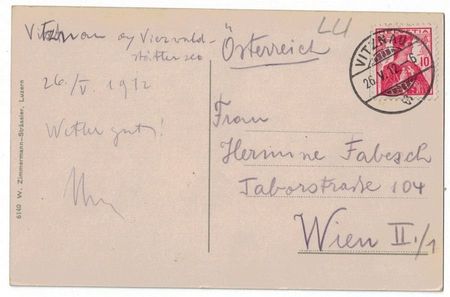 Vitznau am Vierwald-
stättersee
26./V. 1912
Wetter gut!
Österreich
LU
VITZNAU
26.V.12
HELVETIA
10
Frau
Hermine Fabesch
Taborstraße 104
Wien II./1
6140 W. Zimmermann-Strässler, Luzern